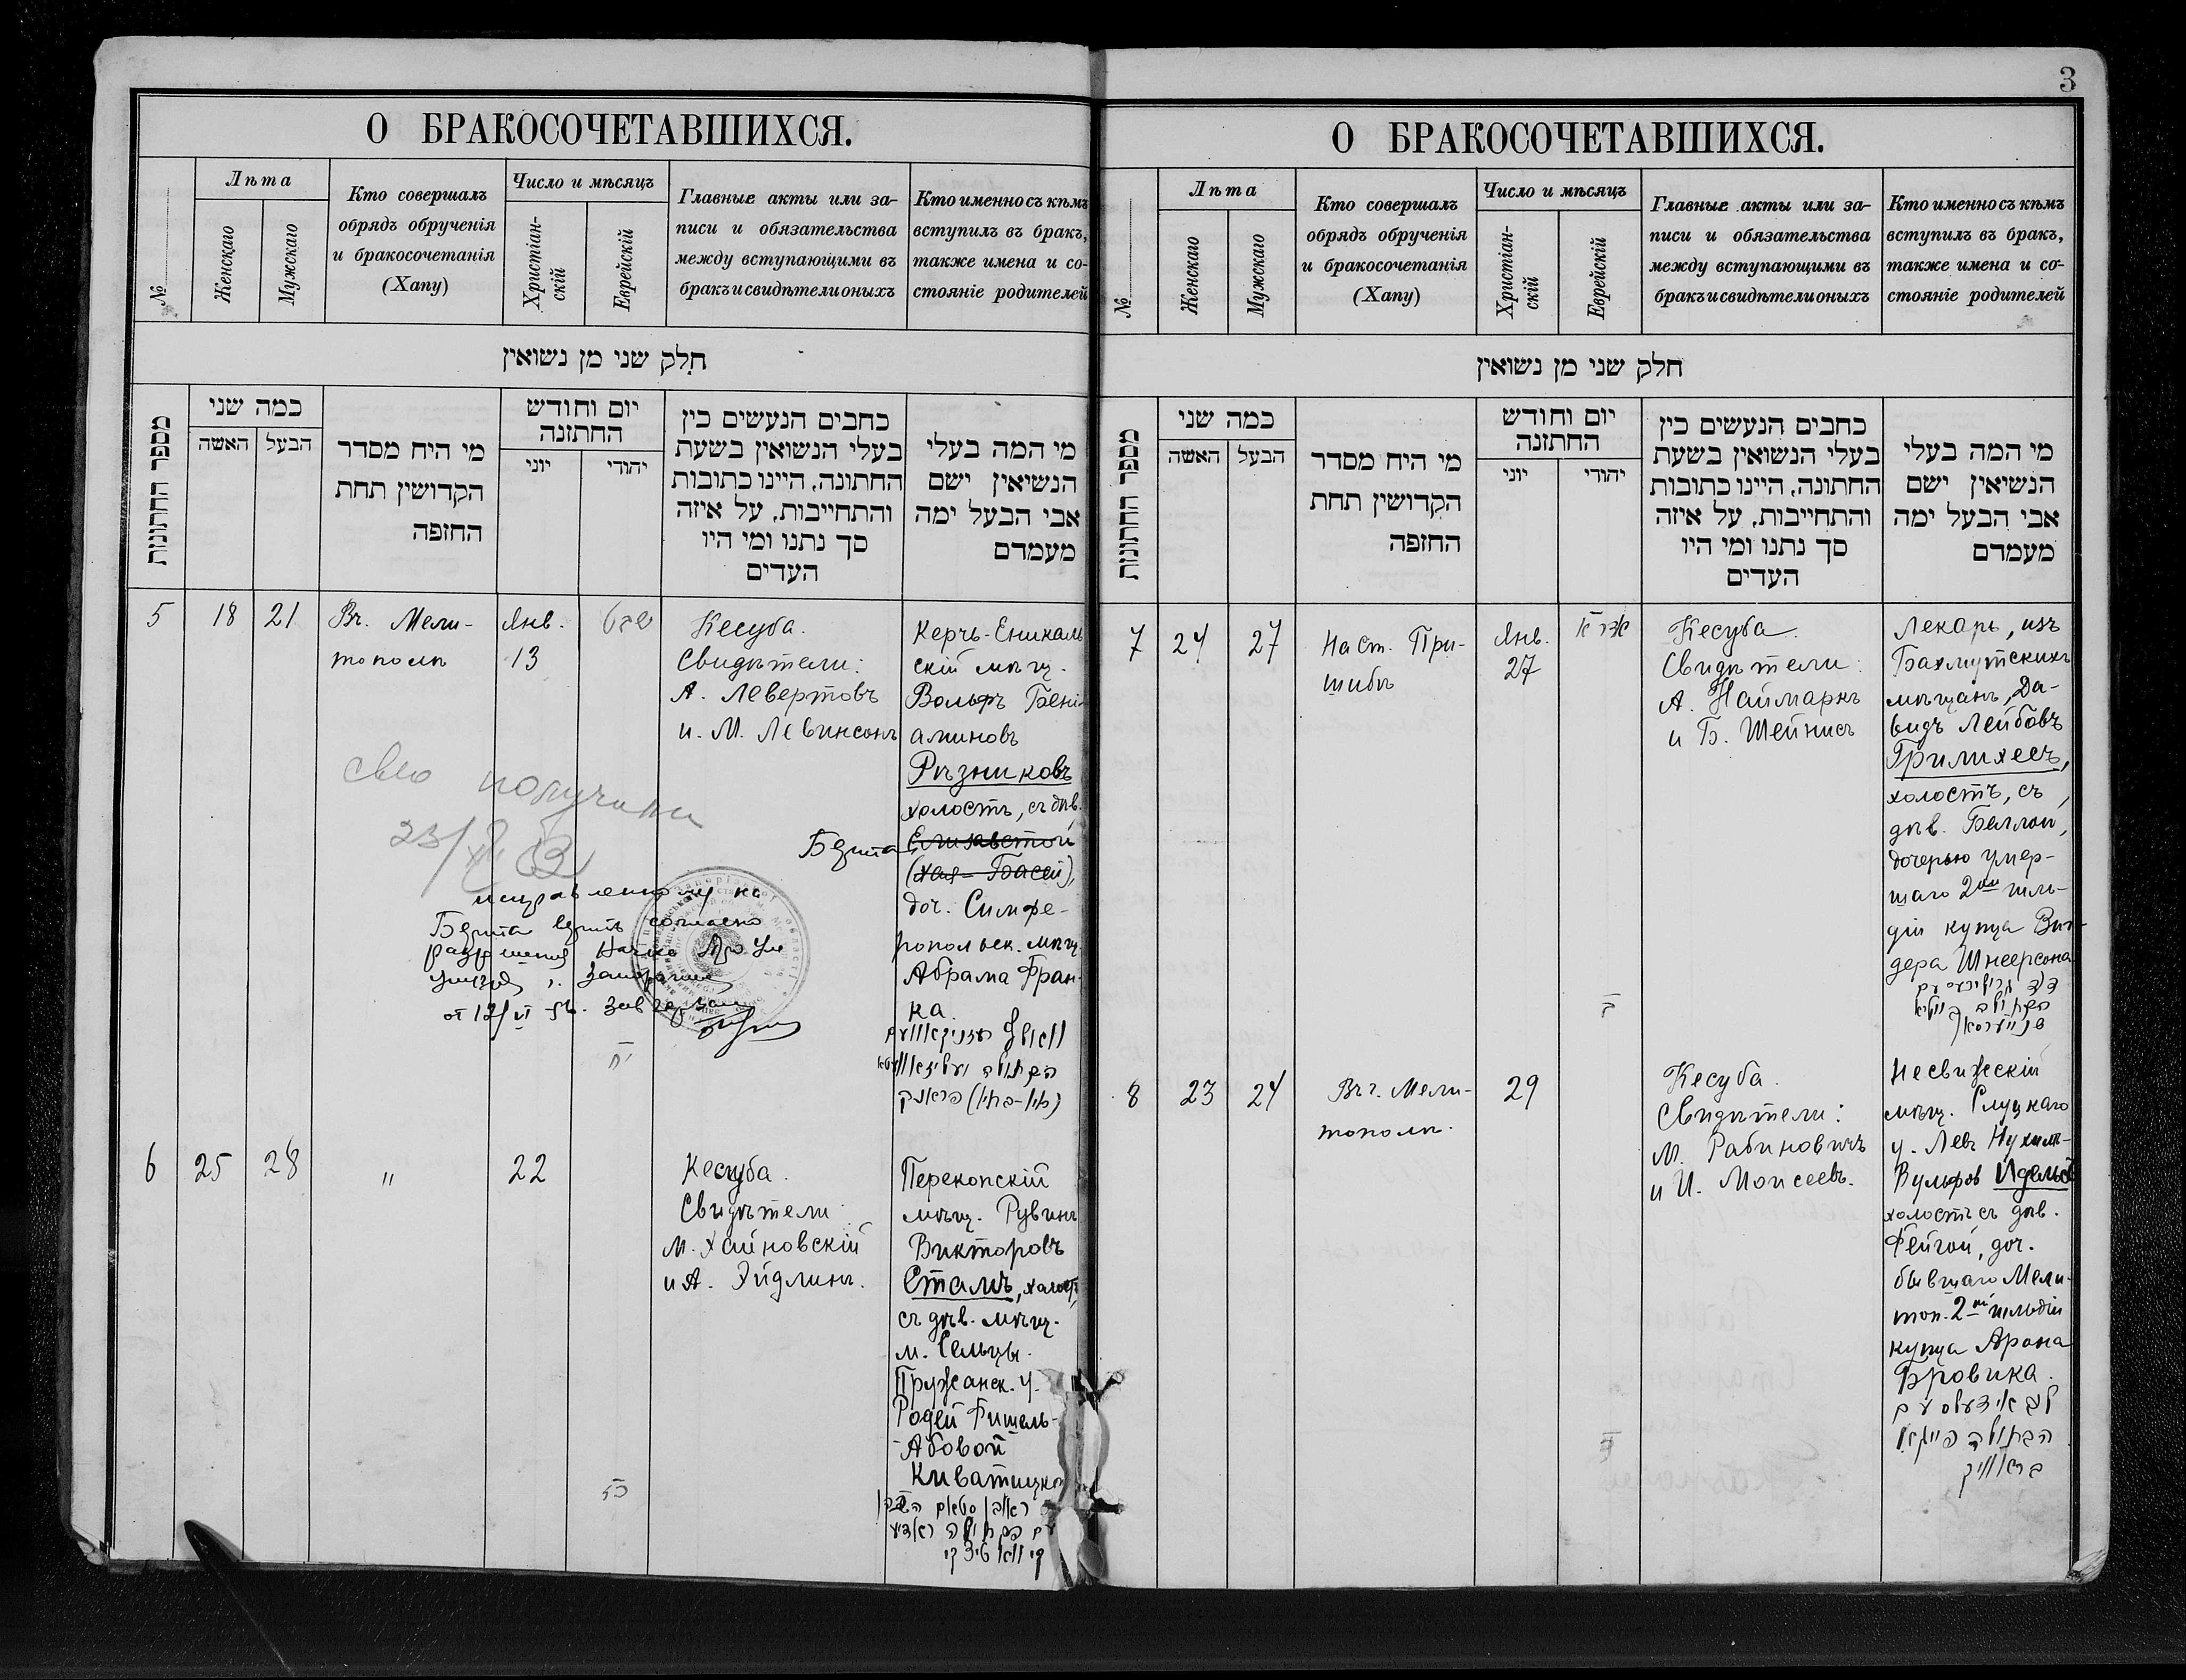 3
О БРАКОСОЧЕТАВШИХСЯ.
№
Лѣта
Женскаго
Мужскаго
Кто совершалъ
обрядъ обрученія
и бракосочетанія
(Хапу)
Число и мѣсяцъ
Христіан-
скій
Еврейскій
Главные акты или за-
писи и обязательства
между вступающими въ
бракъ и свидѣтели оныхъ
Кто именно съ кѣмъ
вступилъ въ бракъ,
также имена и со-
стояніе родителей
חלק שני מן נשואין
מספר החתונות
כמה שני
האשה
הבעל
מי היח מסדר
הקדושין תחת
החזפה
יום וחודש
החתזנה
יוני
יהודי
כחבים הנעשים כין
בעלי הנשואין בשעת
החתונה, היינו כתובות
והתחייבות, על איזה
סך נתנו ומי היו
העדים
מי המה בעלי
הנשיאין ישם
אבי הבעל ימה
מעמדם
5
18
21
Въ. Мели-
тополѣ
Янв.
13
Кесуба.
Свидѣтели:
А. Левертовъ
и. М. Левинсонъ
Керчь-Еникаль
скій мѣщ.
Вольфъ Бені-
аминовъ
Рѣзниковъ
холостъ, съ дѣв.
Берта Елисаветой
(Хая-Басей),
доч. Симфе-
ропольск. мѣщ.
Абрама Фран-
ка.
הבתולה
פראנק
св-во получили
исправленному на
Берта верить согласно
от 12/VI
יח
6
25
28
"
22
כז
Кесуба.
Свидѣтели
М. Хайновскій
и А. Эйдлинъ.
Перекопскій
мѣщ. Рувинъ
Викторовъ
Сталь, холост,
съ дѣв. мѣщ.
м. Сельцы.
Пружанск. у.
Родей Фишель-
Абовой
Киватицкой
עם הבתולה
О БРАКОСОЧЕТАВШИХСЯ.
№
Лѣта
Женскаго
Мужскаго
Кто совершалъ
обрядъ обрученія
и бракосочетанія
(Хапу)
Число и мѣсяцъ
Христіан-
скій
Еврейскій
Главные акты или за-
писи и обязательства
между вступающими въ
бракъ и свидѣтели оныхъ
Кто именно съ кѣмъ
вступилъ въ бракъ,
также имена и со-
стояніе родителей
חלק שני מן נשואין
מספר החתונות
כמה שני
האשה
הבעל
מי היח מסדר
הקדושין תחת
החזפה
יום וחודש
החתזנה
יוני
יהודי
כחבים הנעשים כין
בעלי הנשואין בשעת
החתונה, היינו כתובות
והתחייבות, על איזה
סך נתנו ומי היו
העדים
מי המה בעלי
הנשיאין ישם
אבי הבעל ימה
מעמדם
7
24
27
На ст. При-
шибъ
Янв.
27
Кесуба.
Свидѣтели:
А. Наймаркъ
и Б. Шейнисъ
Лекарь, изъ
Бахмутскихъ
мѣщанъ, Да-
видъ Лейбовъ
Грилихесъ,
холостъ, съ
дѣв. Беллой,
дочерью умер-
шаго 2ой гиль-
діи купца Виг-
дера Шнеерсона
8
23
24
Въ г. Мели-
тополѣ.
29
Кесуба.
Свидѣтели:
М. Рабиновичъ
и И. Моисеевъ.
Несвижескій
мѣщ. Слуцкаго
у. Левъ Нухимъ-
Вульфов Идельс
холостъ съ дѣв.
Фейгой, доч.
бывшаго Мели-
топ. 2ой гильдіи
купца Арона
Бровика.
הבתולה פייגא
בראוויק